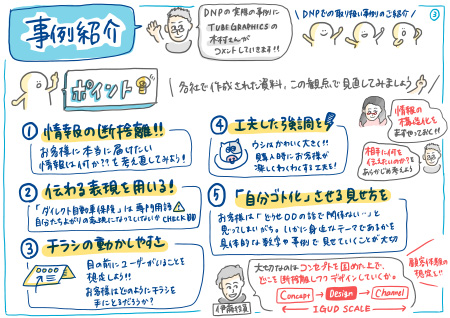 事例紹介
DNPの実際の事例に
TUBE GRAPHICSの
木村さんが
コメントしていきます!!
DNPでの取り扱い事例のご紹介
③
ポイント
各社で作成された資料、この観点で見直してみましょう
① 情報の断捨離!!
お客様に本当に届けたい
情報は何か??を考え直してみよう!
② 伝わる表現を用いる!
「ダイレクト自動車保険」は専門用語
自分たちよがりの表現になっていないかCHECK
③ チラシの動かしやすさ
目の前にユーザーがいることを
想定しよう!!
お客様はどのようにチラシを
手にとるだろうか?
④ 工夫した強調を
ウシはかわいく大きく!!
購入時にお客様が
楽しくわくわくする工夫を!
情報の
構造化を
まずやっておく!!
相手に何を
伝えたいのか?を
あらかじめ考えよう
⑤「自分ゴト化」させる見せ方を
お客様は「どうせ〇〇の話で関係ない…」と
思ってしまいがち。いかに身近なテーマであるかを
具体的な数字や事例で見せていくことが大切
伊藤校長
大切なのはコンセプトを固めた上で、
どこを断捨離しつつデザインしていくか。
Concept → Design → Channel
IGUD SCALE
顧客体験の
想定を!!